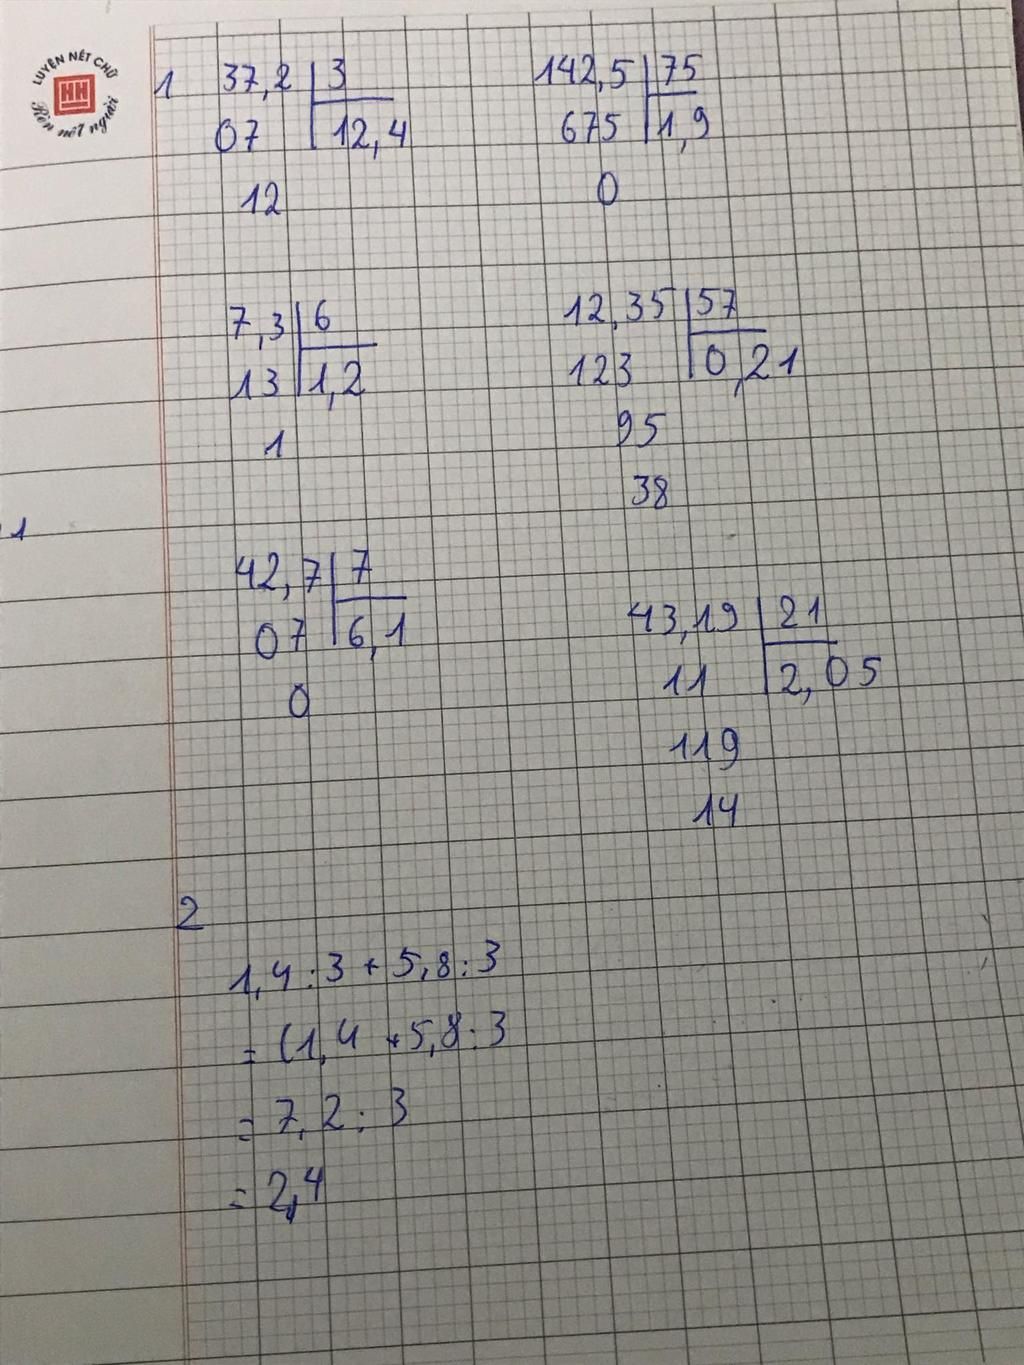 LUYỆN NÉT CHỮ
HH
Rèn nết người
1
37,2 | 3
07 | 12,4
12
142,5 | 75
675 | 1,9
0
7,3 | 6
13 | 1,2
1
12,35 | 57
123 | 0,21
95
38
1
42,7 | 7
07 | 6,1
0
43,19 | 21
11 | 2,05
119
14
2
1,4 : 3 + 5,8 : 3
= (1,4 + 5,8 : 3
= 7,2 : 3
= 2,4